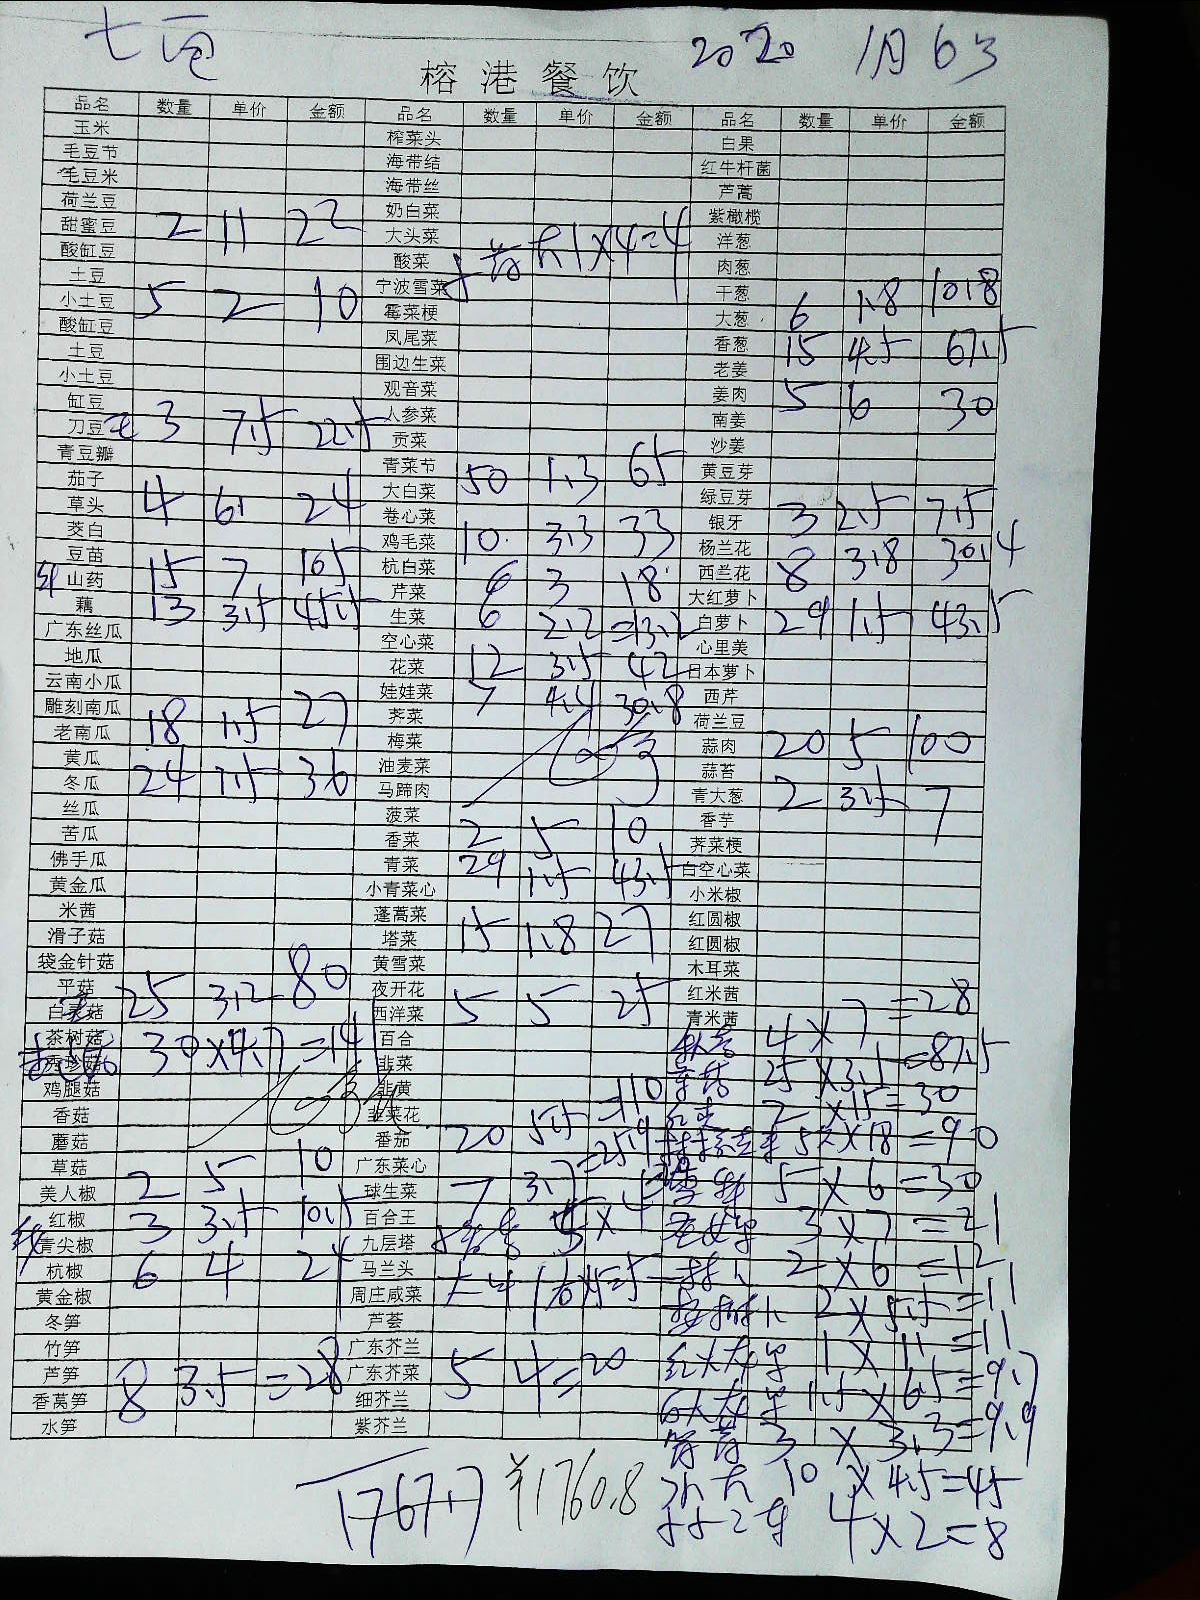 2020 1月6日
榕港餐饮
品名 数量 单价 金额 品名 数量 单价 金额 品名 数量 单价 金额
玉米 榨菜头 白果
毛豆节 海带结 红牛杆菌
毛豆米 海带丝 芦蒿
荷兰豆 奶白菜 紫橄榄
甜蜜豆 2 11 22 大头菜 洋葱
酸缸豆 酸菜 1×4=4 肉葱
土豆 宁波雪菜 干葱
小土豆 5 2 10 霉菜梗 大葱 6 1.8 10.8
酸缸豆 凤尾菜 香葱 15 4.5 67.5
土豆 围边生菜 老姜
小土豆 观音菜 姜肉 5 6 30
缸豆 人参菜 南姜
刀豆 3 7.5 22.5 贡菜 沙姜
青豆瓣 青菜节 黄豆芽
茄子 大白菜 50 1.3 65 绿豆芽
草头 4 6 24 卷心菜 银牙 3 2.5 7.5
茭白 鸡毛菜 10 3.3 33 杨兰花
豆苗 杭白菜 西兰花 8 3.8 30.4
山药 15 7 105 芹菜 6 3 18 大红萝卜
藕 13 3.5 45.5 生菜 6 2.2 =13.2 白萝卜 29 1.5 43.5
广东丝瓜 空心菜 心里美
地瓜 花菜 12 3.5 42 日本萝卜
云南小瓜 娃娃菜 7 4.4 30.8 西芹
雕刻南瓜 荠菜 荷兰豆
老南瓜 18 1.5 27 梅菜 蒜肉 20 5 100
黄瓜 油麦菜 蒜苔
冬瓜 24 1.5 36 马蹄肉 青大葱 2 3.5 7
丝瓜 菠菜 香芋
苦瓜 香菜 2 5 10 荠菜梗
佛手瓜 青菜 29 1.5 43.5 白空心菜
黄金瓜 小青菜心 小米椒
米茜 蓬蒿菜 15 1.8 27 红圆椒
滑子菇 塔菜 红圆椒
袋金针菇 黄雪菜 木耳菜
平菇 夜开花 红米茜
白灵菇 25 3.2 80 西洋菜 5 5 25 青米茜
茶树菇 30×4.7=141 百合 4×7=28
秀珍菇 韭菜 25×3.5=87.5
鸡腿菇 韭黄 2×15=30
香菇 韭菜花 5×18=90
蘑菇 番茄 20 5.5 =110
草菇 广东菜心 5×6=30
美人椒 2 5 10 球生菜 7 3.7 =25.9 3×7=21
红椒 3 3.5 10.5 百合王
青尖椒 九层塔 2×6=12
杭椒 6 4 24 马兰头 2×5.5=11
黄金椒 周庄咸菜
冬笋 芦荟 1×11=11
竹笋 广东芥兰 1.5×6.5=9.7
芦笋 广东芥菜 5 4=20
香莴笋 8 3.5 =28 细芥兰 3×3.3=9.9
水笋 紫芥兰
10×4.5=45
4×2=8
1767.7 ¥1760.8